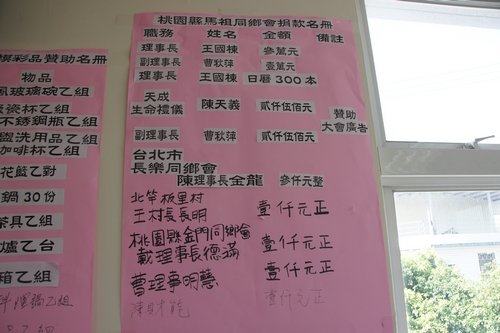 模彩品贊助名冊
物品
風玻璃碗乙組
瓷杯乙組
不銹鋼瓶乙組
盥洗用品乙組
咖啡杯乙組
花籃乙對
鍋30份
茶具乙組
爐乙台
箱乙組
桃園縣馬祖同鄉會捐款名冊
職務 姓名 金額 備註
理事長 王國棟 參萬元
副理事長 曹秋萍 壹萬元
理事長 王國棟 日曆300本
天成
生命禮儀 陳天義 貳仟伍佰元 贊助
大會廣告
副理事長 曹秋萍 貳仟伍佰元
台北市
長樂同鄉會
陳理事長金龍 參仟元整
北竿板里村
王村長長明 壹仟元正
桃園縣金門同鄉會
戴理事長德滿 壹仟元正
曹理事明藝 壹仟元正
陳財能 壹仟元正